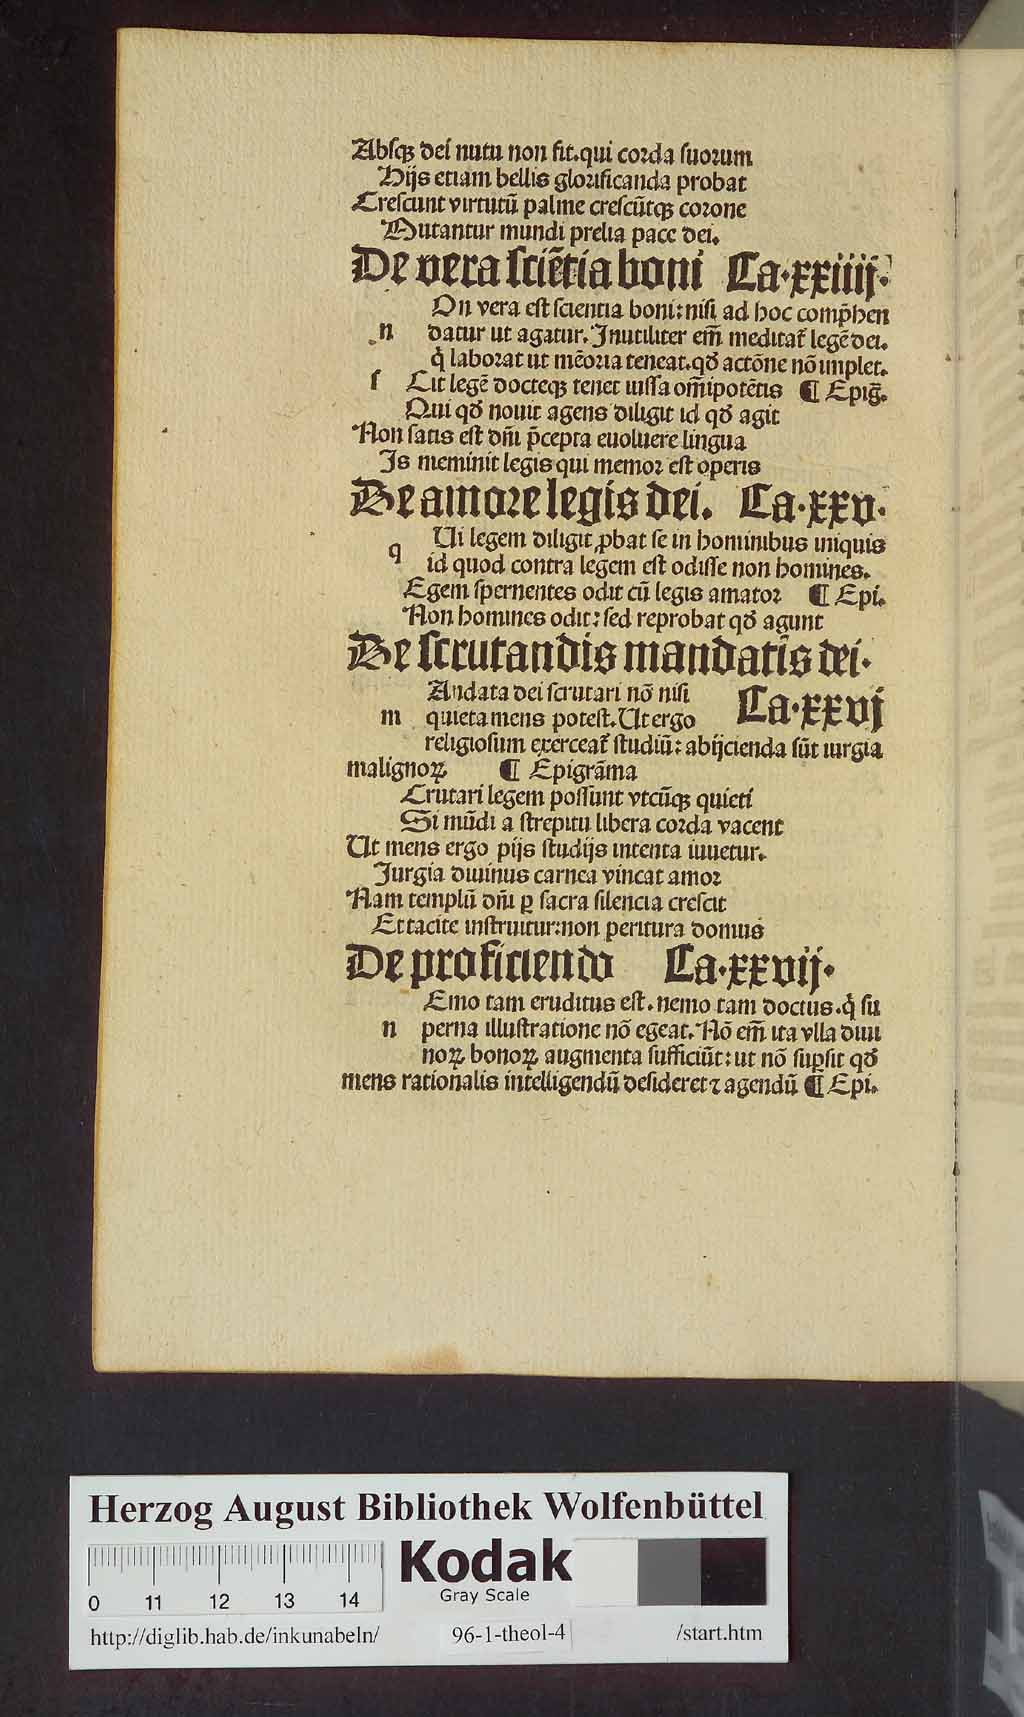 Absqꝫ dei nutu non fit.qui corda suorum
Hijs etiam bellis glorificanda probat
Crescunt virtutū palme crescūtqꝫ corone
Mutantur mundi prelia pace dei.
De vera sciētia boni Ca.xxiiij.
On vera est scientia boni: nisi ad hoc comp̄hen
n datur ut agatur. Inutiliter em̄ meditat̄ legē dei.
q̇ laborat ut mēoria teneat.qd̓ actōne nō implet.
s Cit legē docteqꝫ tenet iussa om̄ipotētis ¶ Epig̅.
Qui qd̓ novit agens diligit id qd̓ agit
Non satis est dn̄i p̄cepta euoluere lingua
Is meminit legis qui memor est operis
De amore legis dei. Ca.xxv.
q Ui legem diligit ꝓbat se in hominibus iniquis
id quod contra legem est odisse non homines.
Egem spernentes odit cū legis amator ¶ Epi.
Non homines odit: sed reprobat qd̓ agunt
De scrutandis mandatis dei.
Andata dei scrutari nō nisi Ca.xxvj
m quieta mens potest. Ut ergo
religiosum exerceat̄ studiū: abijcienda sūt iurgia
malignoꝝ ¶ Epigrāma
Crutari legem possunt vtcūqꝫ quieti
Si mūdi a strepitu libera corda vacent
Ut mens ergo pijs studijs intenta iuuetur.
Iurgia diuinus carnea vincat amor
Nam templū dn̄i ꝑ sacra silencia crescit
Et tacite instruitur:non peritura domus
De proficiendo Ca.xxvij.
Emo tam eruditus est. nemo tam doctus.q̇ su
n perna illustratione nō egeat. Nō em̄ ita vlla diui
noꝝ bonoꝝ augmenta sufficiūt: ut nō suꝑsit qd̓
mens rationalis intelligendū desideret ⁊ agendū ¶ Epi.
Herzog August Bibliothek Wolfenbüttel
Kodak
Gray Scale
0 11 12 13 14
http://diglib.hab.de/inkunabeln/ 96-1-theol-4 /start.htm